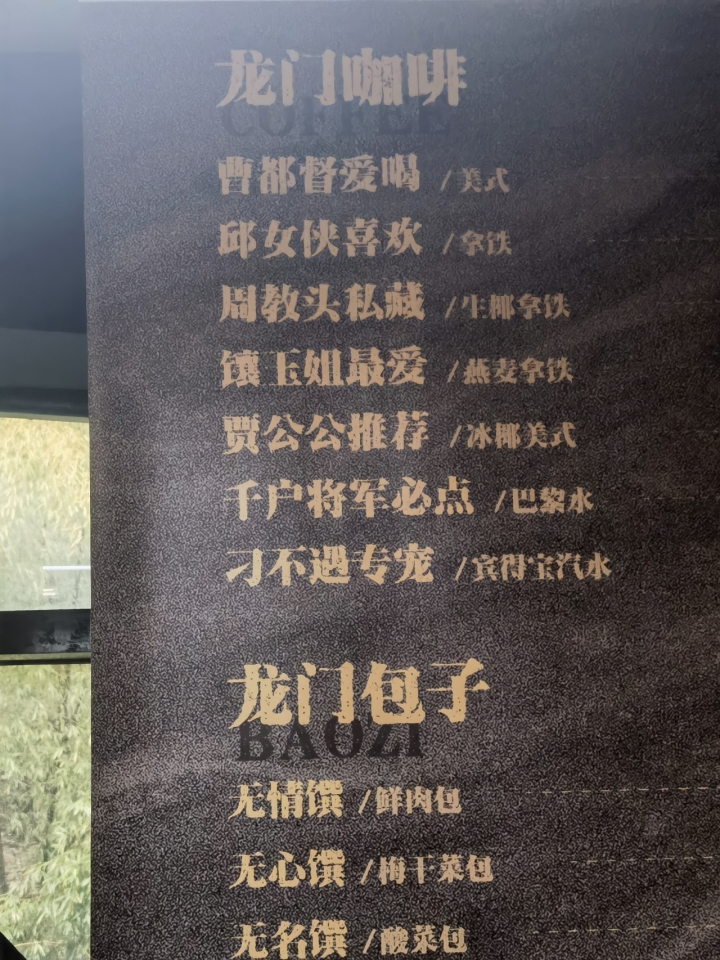 龙门咖啡
COFFEE
曹都督爱喝 /美式
邱女侠喜欢 /拿铁
周教头私藏 /生椰拿铁
镶玉姐最爱 /燕麦拿铁
贾公公推荐 /冰椰美式
千户将军必点 /巴黎水
刁不遇专宠 /宾得宝汽水
龙门包子
BAOZI
无情馔 /鲜肉包
无心馔 /梅干菜包
无名馔 /酸菜包